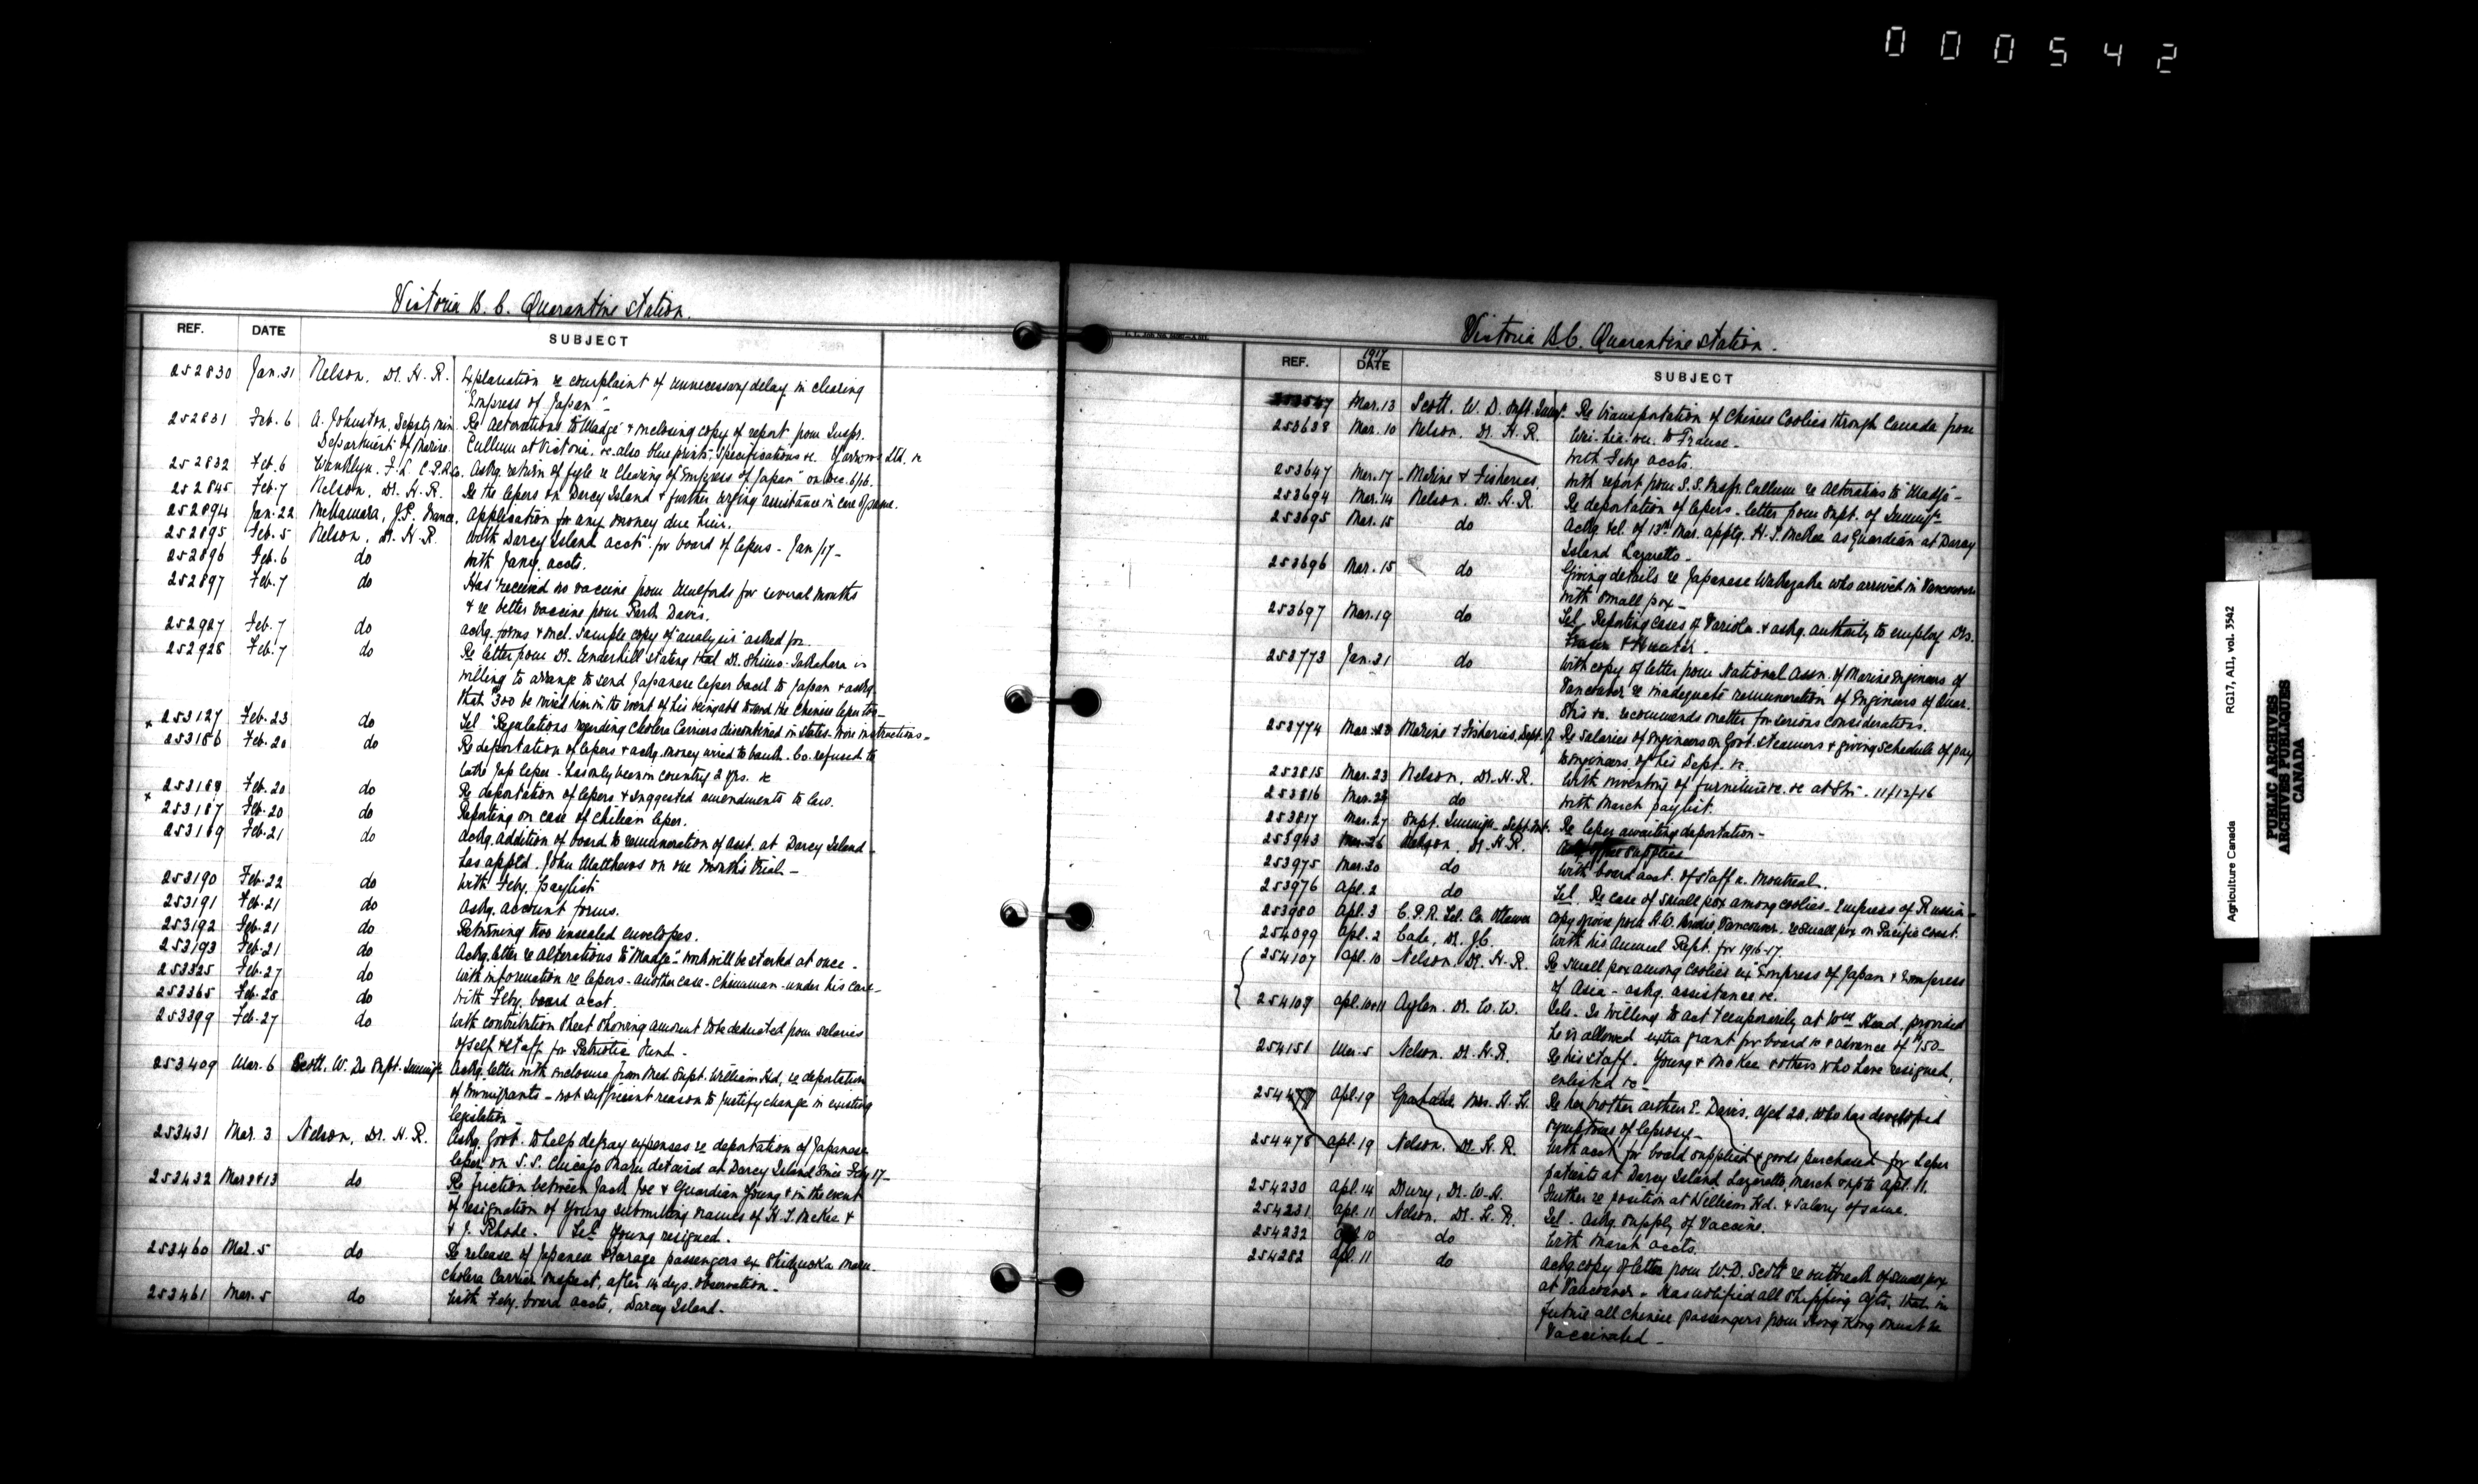 000542
Victoria B.C. Quarantine Station.
REF. DATE SUBJECT
252830 Jan. 31 Nelson, Dr. H. R. Explanation re complaint of unnecessary delay in clearing
"Empress of Japan".
252831 Feb. 6 A. Johnston, Deputy Min. Re alterations to "Madge" & enclosing copy of report from Inspr.
Department of Marine. Cullum at Victoria, re also blue prints, specifications &c. Yarrows Ltd. &c
252832 Feb. 6 Wanklyn, F. L. C.P.R. Co. Askg. return of fyle re clearing of "Empress of Japan" on Dec. 6/16.
252845 Feb. 7 Nelson, Dr. H. R. Re the lepers on Darcy Island & further urging assistance in care of same.
252894 Jan. 22 McNamara, J.P. Application for any money due him.
252895 Feb. 5 Nelson, Dr. H. R. With Darcy Island acct. for board of lepers - Jan/17 -
252896 Feb. 6 do With Jany. accts.
252897 Feb. 7 do Has received no vaccine from Mulfords for several months
& re better vaccine from Park Davis.
252927 Feb. 7 do Askg. forms & encl. sample copy of "analysis" asked for.
252928 Feb. 7 do Re letter from Dr. Underhill stating that Dr. Shimo-Takahara is
willing to arrange to send Japanese leper back to Japan & askg.
that $300 be wired him in the event of his being able to send the Chinese leper too -
x 253127 Feb. 23 do Tel. "Regulations regarding Cholera Carriers discontinued in States. Wire instructions -
253186 Feb. 20 do Re deportation of lepers & askg. money wired to bank. Co. refused to
take Jap leper - has only been in country 2 yrs. &c
253188 Feb. 20 do Re deportation of lepers & suggested amendments to law.
x 253187 Feb. 20 do Reporting on case of Chilian leper.
253189 Feb. 21 do Askg. addition of board to remuneration of asst. at Darcy Island -
has apptd. John Matthews on one month's trial -
253190 Feb. 22 do With Feby. paylist
253191 Feb. 21 do Askg. account forms.
253192 Feb. 21 do Returning two unsealed envelopes.
253193 Feb. 21 do Ackg. letter re alterations to "Madge" - work will be started at once -
253325 Feb. 27 do With information re lepers - another case - Chinaman - under his care -
253365 Feb. 28 do With Feby. board acct.
253399 Feb. 27 do With contribution sheet showing amount to be deducted from salaries
of self & staff for Patriotic Fund -
253409 Mar. 6 Scott, W. D. Supt. Immig. Ackg. letter with enclosure from Med. Supt. William Hd. re deportation
of immigrants - not sufficient reason to justify change in existing
legislation -
253431 Mar. 3 Nelson, Dr. H. R. Askg. Govt. to help defray expenses re deportation of Japanese
leper on S.S. Chicago Maru detained at Darcy Island since Feby 17 -
253432 Mar 8 & 13 do Re friction between Jack Joe & Guardian Young & in the event
of resignation of Young submitting names of H. T. McKee &
& J. Rhode. Tel. Young resigned.
253460 Mar. 5 do Re release of Japanese steerage passengers ex Shidzuoka Maru
cholera carrier suspect, after 14 days observation -
253461 Mar. 5 do With Feby. board accts, Darcy Island.
Victoria B.C. Quarantine Station.
REF. 1917 DATE SUBJECT
Mar. 13 Scott, W. D. Supt. Immig. Re transportation of Chinese Coolies through Canada from
Wei-hai-wei to France -
253638 Mar. 10 Nelson, Dr. H. R. With Feby accts.
253647 Mar. 17 Marine & Fisheries. With report from S.S. Inspr. Cullum re alterations to "Madge" -
253694 Mar. 14 Nelson, Dr. H. R. Re deportation of lepers - letter from Supt. of Immign.
253695 Mar. 15 do Ackg. tel. of 13th Mar. apptg. H. T. McKee as Guardian at Darcy
Island Lazaretto -
253696 Mar. 15 do Giving details re Japanese who arrived in Vancouver
with small pox -
253697 Mar. 19 do Tel. Reporting cases of Variola & askg. authority to employ Drs.
Fraser & Hunter.
253773 Jan. 31 do With copy of letter from National Assn. of Marine Engineers of
Vancouver re inadequate remuneration of Engineers of Quar.
Stns &c. recommends matter for serious consideration.
253774 Mar 23 Marine & Fisheries, Dept. of Re salaries of Engineers on Govt. Steamers & giving schedule of pay
to engineers of his Dept. &c.
253815 Mar. 23 Nelson, Dr. H. R. With inventory of furniture &c. &c at Stn. 11/12/16
253816 Mar. 24 do With March paylist.
253817 Mar. 27 Supt. Immign. Dept. Int. Re leper awaiting deportation -
253943 Mar. 26 Nelson, Dr. H. R. supplies
253975 Mar. 30 do With board acct. of staff Montreal.
253976 Apl. 2 do Tel. Re case of small pox among coolies - Empress of Russia -
253980 Apl. 3 C.P.R. Tel. Co. Ottawa Copy of wire from A.W. Brodie, Vancouver, re small pox on Pacific Coast.
254099 Apl. 2 Cade, Dr. J.C. With his Annual Rept. for 1916-17.
254107 Apl. 10 Nelson, Dr. H. R. Re small pox among coolies ex "Empress of Japan & Empress
of Asia - askg. assistance &c.
254108 Apl. 10 & 11 Aylen, Dr. W. W. Tels. Is willing to act temporarily at Wm Head, provided
he is allowed extra grant for board &c & advance of $150 -
254151 Mar. 5 Nelson, Dr. H. R. Re his staff. Young & McKee & others who have resigned,
enlisted &c -
254477 Apl. 19 Mrs. H. H. Re her brother Arthur E. Davis, aged 20, who has developed
symptoms of leprosy -
254478 Apl. 19 Nelson, Dr. H. R. With acct for board supplied & goods purchased for leper
patients at Darcy Island Lazaretto, March & up to Apl. 11.
254230 Apl. 14 Drury, Dr. W. H. Further re position at William Hd. & salary of same.
254231 Apl. 11 Nelson, Dr. H. R. Tel. Askg. supply of Vaccine.
254232 Apl. 10 do With March accts.
254282 Apl. 11 do Ackg. copy of letter from W.D. Scott re outbreak of small pox
at Vancouver. Has notified all shipping agts. that in
future all Chinese passengers from Hong Kong must be
vaccinated -
Agriculture Canada RG17, AII, vol. 3542
PUBLIC ARCHIVES
ARCHIVES PUBLIQUES
CANADA